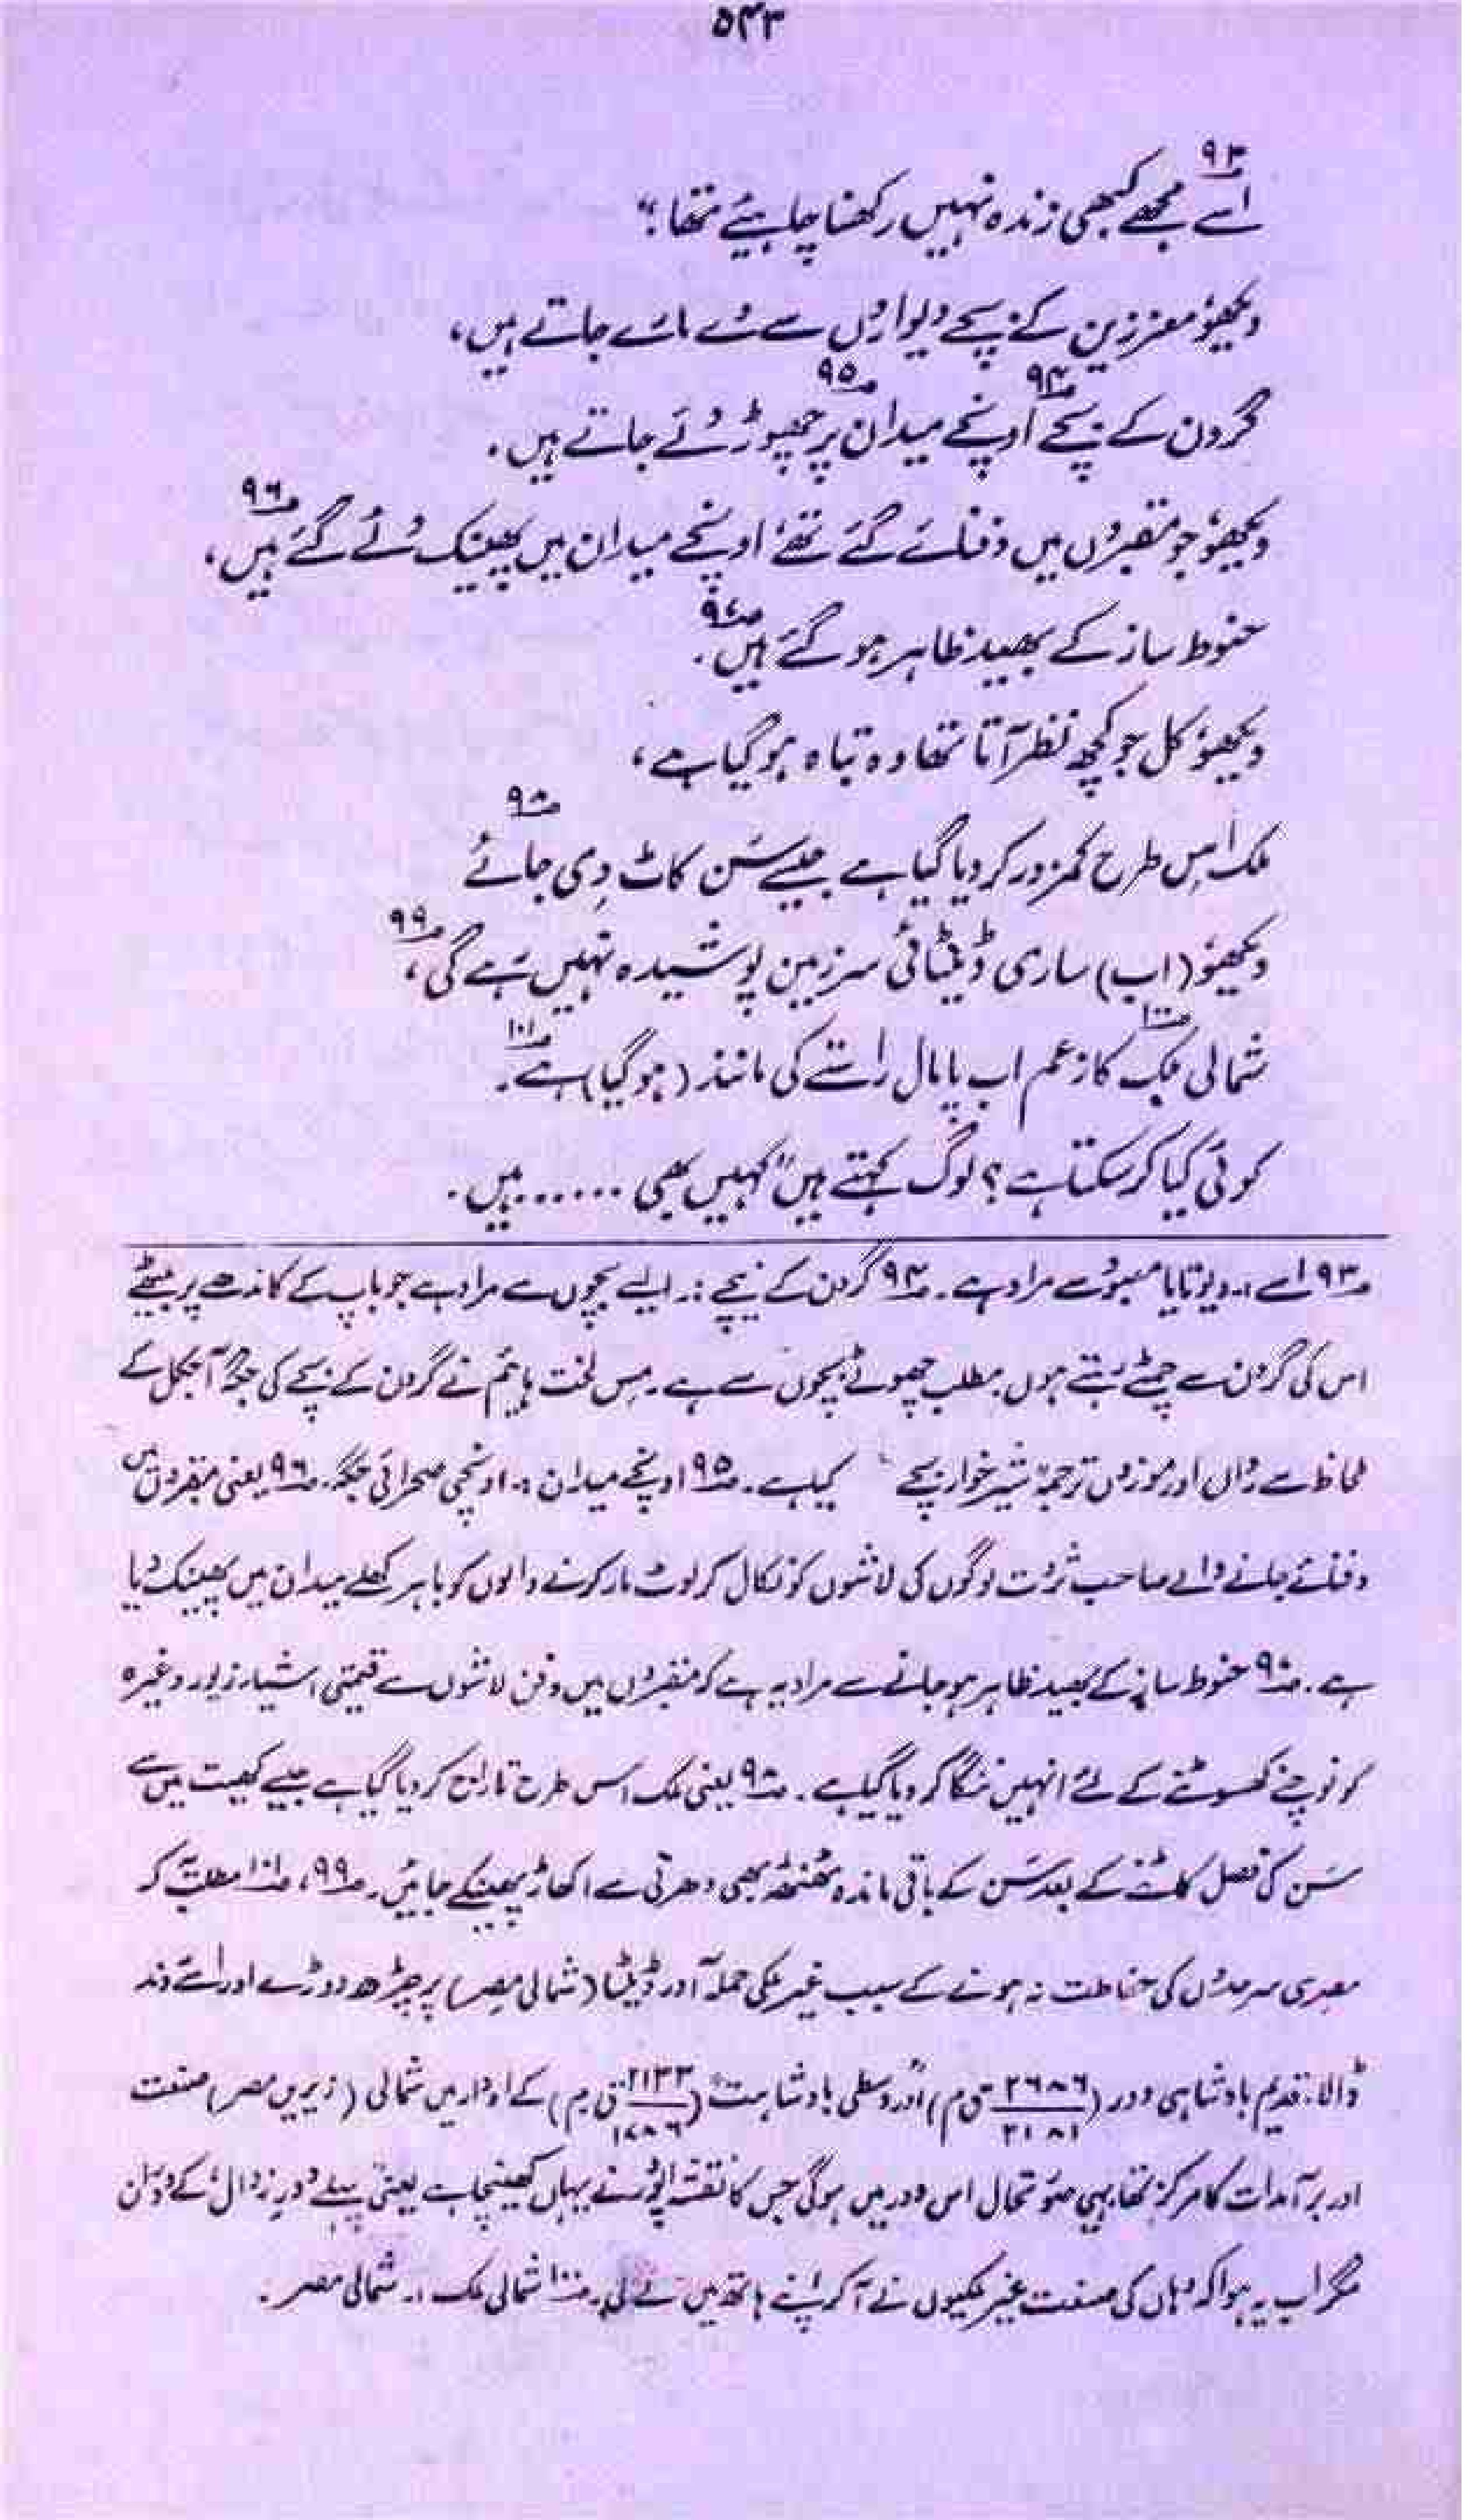 ۵۴۳
۹۳
اسے مجھے کبھی زندہ نہیں رکھنا چاہیئے تھا؛“
دیکھو، معززین کے بچے دیواروں سے دے مارے جاتے ہیں،
گردن کے بچے ۹۴ اونچے میدان ۹۵ پر چھوڑ دئے جاتے ہیں۔
دیکھو، جو مقبروں میں دفنائے گئے تھے، اونچے میدان میں پھینک دئے گئے ہیں ۹۶،
حنوط ساز کے بھید ظاہر ہو گئے ہیں ۹۷۔
دیکھو، کل جو کچھ نظر آتا تھا وہ تباہ ہو گیا ہے،
ملک اس طرح کمزور کر دیا گیا ہے جیسے سَن کاٹ دی جائے ۹۸
دیکھو، (اب) ساری ڈیلٹائی سرزمین پوشیدہ نہیں رہے گی ۹۹،
شمالی ملک ۱۰۰ کا زعم اب پامال راستے کی مانند (ہو گیا) ہے ۱۰۱۔
کوئی کیا کر سکتا ہے؟ لوگ کہتے ہیں ”کہیں بھی ....... ہیں۔
۹۳ اسے :۔ دیوتا یا معبود سے مراد ہے۔ ۹۴ گردن کے بچے :۔ ایسے بچوں سے مراد ہے جو باپ کے کاندھے پر بیٹھے
اس کی گردن سے چمٹے رہتے ہوں۔ مطلب چھوٹے بچوں سے ہے۔ مِس لخت ہائیم نے گردن کے بچے کی جگہ آجکل کے
لحاظ سے رواں اور موزوں ترجمہ شیر خوار بچے کیا ہے۔ ۹۵ اونچے میدان :۔ اونچی صحرائی جگہ۔ ۹۶ یعنی مقبروں میں
دفنائے جانے والے صاحب ثروت لوگوں کی لاشوں کو نکال کر لوٹ مار کرنے والوں کو باہر کھلے میدان میں پھینک دیا
ہے۔ ۹۷ حنوط ساز کے بھید ظاہر ہو جانے سے مراد یہ ہے کہ مقبروں میں دفن لاشوں سے قیمتی اشیار زیور وغیرہ
کو نوچنے کھسوٹنے کے لئے انہیں ننگا کر دیا گیا ہے۔ ۹۸ یعنی ملک اس طرح تاراج کر دیا گیا ہے جیسے کھیت میں سے
سَن کی فصل کاٹنے کے بعد سَن کے باقی ماندہ ٹھنٹھ بھی دھرتی سے اکھاڑ پھینکے جائیں۔ ۹۹، ۱۰۱ مطلب کہ
مصری سرحدوں کی حفاظت نہ ہونے کے سبب غیر ملکی حملہ آور ڈیلٹا (شمالی مصر) پر چڑھ دوڑے اور اسے روند
ڈالا۔ قدیم بادشاہی دور (۲۶۸۶/۲۱۸۱ ق م) اور وسطی بادشاہت (۲۱۳۳/۱۷۸۶ ق م) کے ادوار میں شمالی (زیریں مصر) صنعت
اور برآمدات کا مرکز تھا۔ یہی صورتحال اس دور میں ہو گی جس کا نقشہ اپُوور نے یہاں کھینچا ہے یعنی پہلے ’دورِ زوال‘ کے دوران
مگر اب یہ ہوا کہ وہاں کی صنعت غیر ملکیوں نے آ کر اپنے ہاتھ میں لے لی۔ ۱۰۰ شمالی ملک :۔ شمالی مصر۔